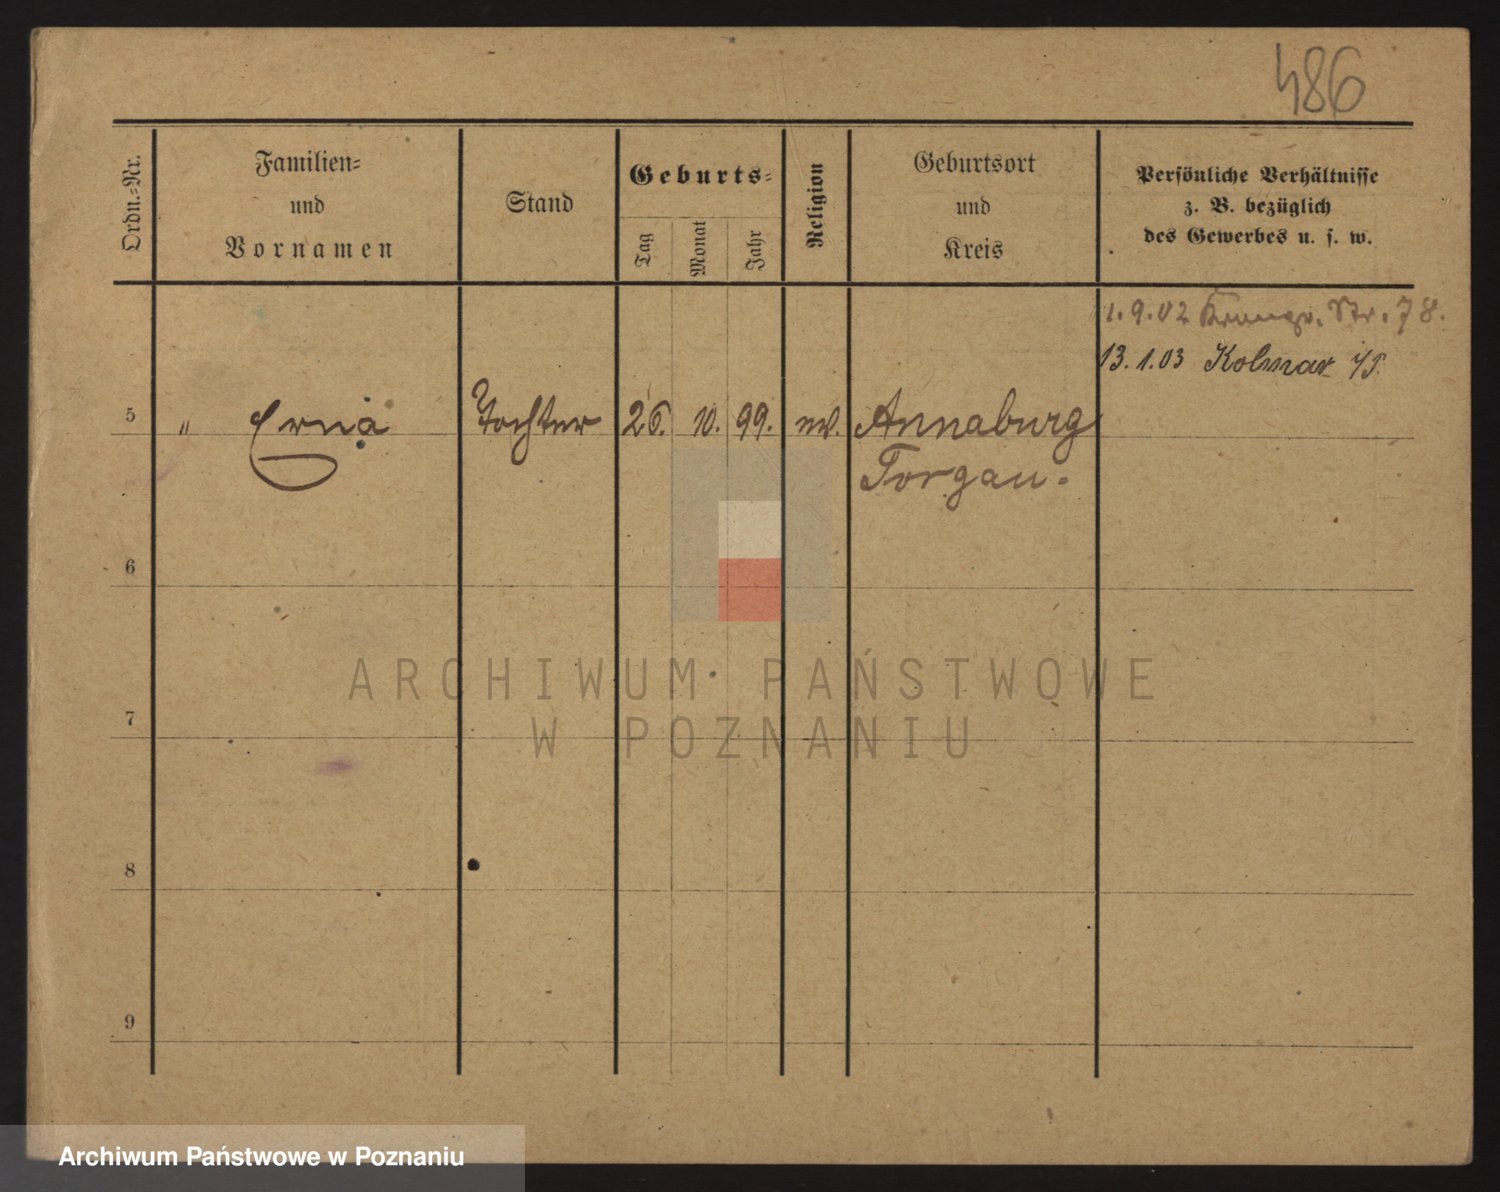 486
Ordn.=Nr.
Familien=
und
Vornamen
Stand
Geburts=
Tag
Monat
Jahr
Religion
Geburtsort
und
Kreis
Persönliche Verhältnisse
z. B. bezüglich
des Gewerbes u. s. w.
1.9.02 Str. 78.
13.1.03 Kolmar
5 " Erna Tochter 26. 10. 99. ev. Annaburg
Torgau.
6
7
8
9
ARCHIWUM PAŃSTWOWE
W POZNANIU
Archiwum Państwowe w Poznaniu